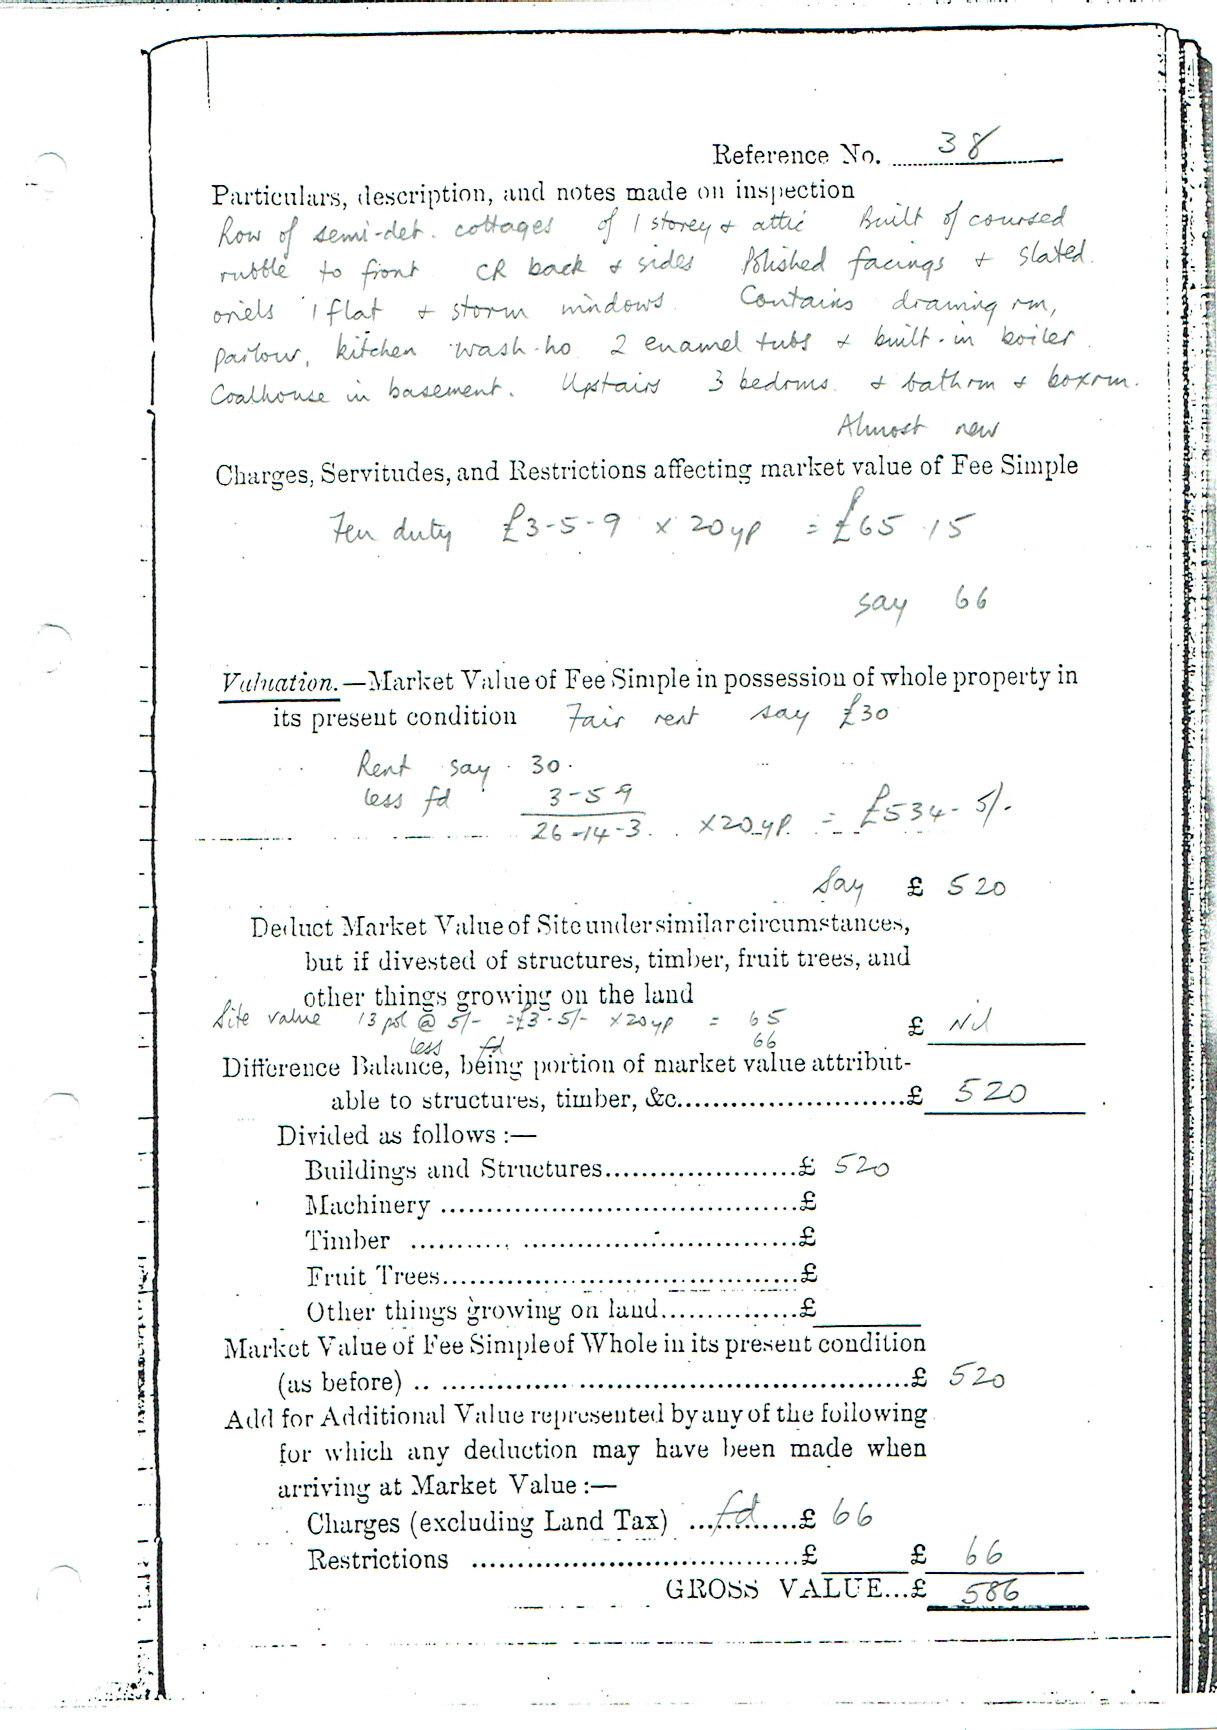 Reference No. 38
Particulars, description, and notes made on inspection
Row of semi-det. cottages of 1 storey & attic Built of coursed
rubble to front CR back & sides Polished facings & slated.
oriels 1 flat & storm windows. Contains drawing rm,
parlour, kitchen wash-ho 2 enamel tubs & built-in boiler.
Coalhouse in basement. Upstairs 3 bedrms. & bathrm & boxrm.
Almost new
Charges, Servitudes, and Restrictions affecting market value of Fee Simple
Feu duty £3-5-9 x 20yp = £65 . 15
say 66
Valuation.—Market Value of Fee Simple in possession of whole property in
its present condition Fair rent say £30
Rent say . 30.
less fd 3-5-9
26-14-3. x20yp. = £534-5/-
Say £ 520
Deduct Market Value of Site under similar circumstances,
but if divested of structures, timber, fruit trees, and
other things growing on the land
Site value 13 pol @ 5/- = £3-5/- x20yp = 65 £ Nil
less fd 66
Difference Balance, being portion of market value attribut-
able to structures, timber, &c.........................£ 520
Divided as follows :—
Buildings and Structures.....................£ 520
Machinery .......................................£
Timber ...........................................£
Fruit Trees.......................................£
Other things growing on land...............£
Market Value of Fee Simple of Whole in its present condition
(as before) .....................................................£ 520
Add for Additional Value represented by any of the following
for which any deduction may have been made when
arriving at Market Value :—
Charges (excluding Land Tax) ...fd......£ 66
Restrictions ....................................£ £ 66
GROSS VALUE...£ 586